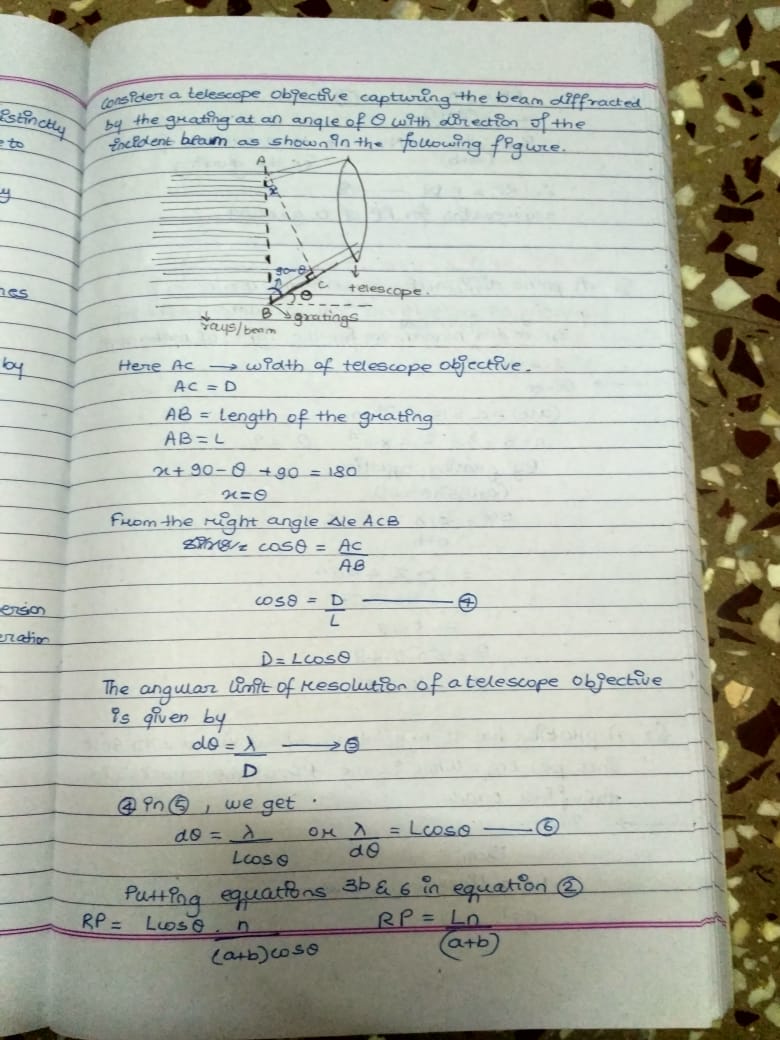 istinctly
e to
y
nes
by
ersion
eration
Consider a telescope objective capturing the beam diffracted
by the grating at an angle of θ with direction of the
incident beam as shown in the following figure.
A
x
90-θ
C
θ
telescope.
B
gratings
rays/beam
Here AC → width of telescope objective.
AC = D
AB = Length of the grating
AB = L
x + 90 - θ + 90 = 180
x = θ
From the right angle Δle ACB
cosθ = AC/AB
cosθ = D/L ——— ④
D = Lcosθ
The angular limit of resolution of a telescope objective
is given by
dθ = λ/D ——→ ⑤
④ in ⑤, we get.
dθ = λ/Lcosθ or λ/dθ = Lcosθ —— ⑥
Putting equations 3b & 6 in equation ②
RP = Lcosθ . n/(a+b)cosθ RP = Ln/(a+b)